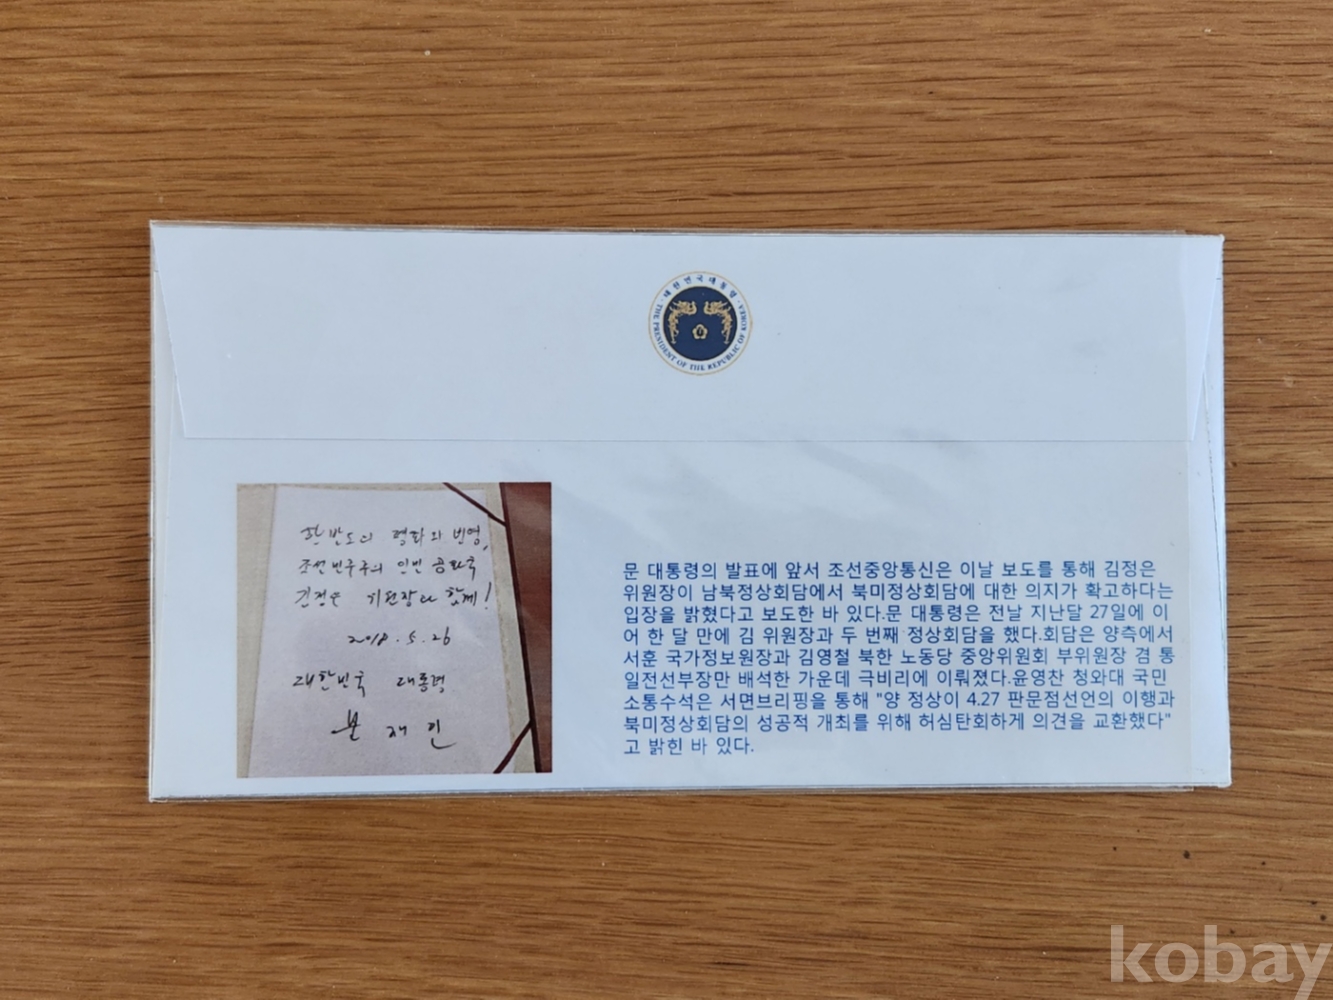 대한민국대통령
THE PRESIDENT OF THE REPUBLIC OF KOREA
한반도의 평화와 번영,
조선민주주의 인민 공화국
김정은 위원장과 함께!
2018. 5. 26
대한민국 대통령
문 재 인
문 대통령의 발표에 앞서 조선중앙통신은 이날 보도를 통해 김정은
위원장이 남북정상회담에서 북미정상회담에 대한 의지가 확고하다는
입장을 밝혔다고 보도한 바 있다.문 대통령은 전날 지난달 27일에 이
어 한 달 만에 김 위원장과 두 번째 정상회담을 했다.회담은 양측에서
서훈 국가정보원장과 김영철 북한 노동당 중앙위원회 부위원장 겸 통
일전선부장만 배석한 가운데 극비리에 이뤄졌다.윤영찬 청와대 국민
소통수석은 서면브리핑을 통해 "양 정상이 4.27 판문점선언의 이행과
북미정상회담의 성공적 개최를 위해 허심탄회하게 의견을 교환했다"
고 밝힌 바 있다.
kobay